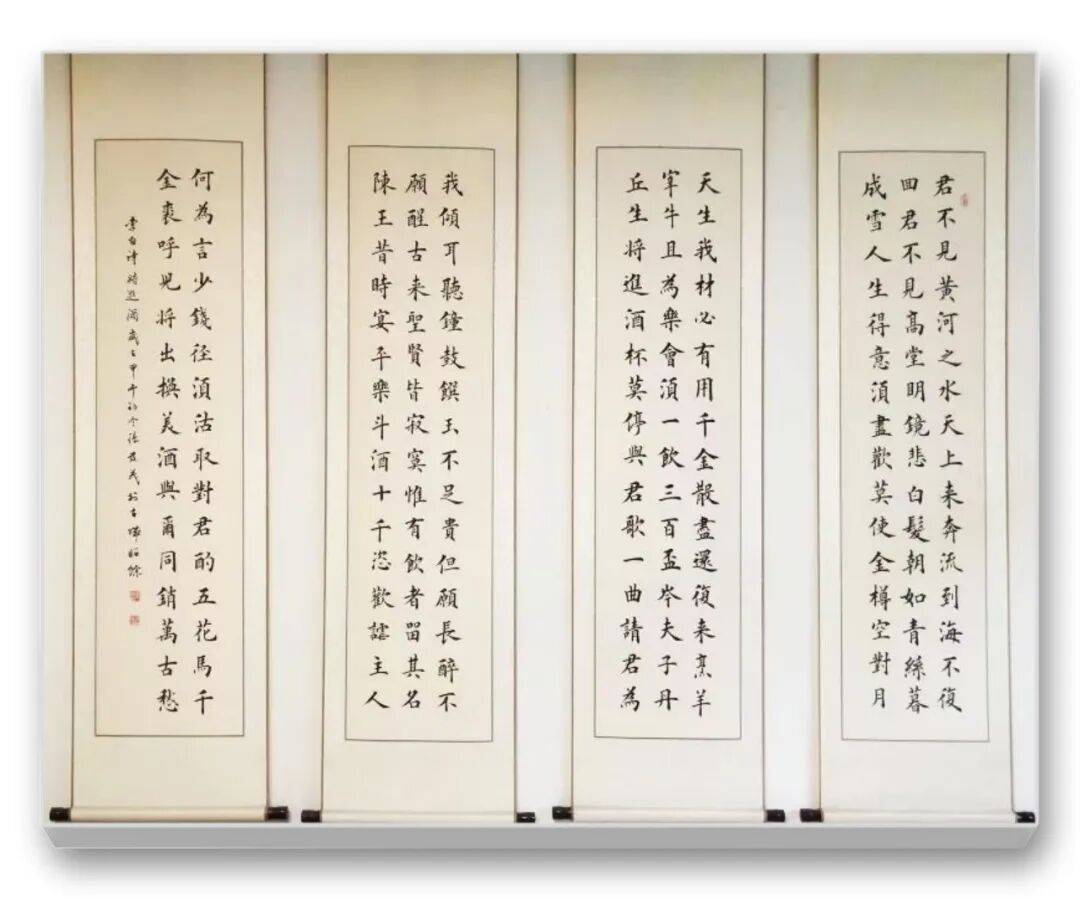 君不見黃河之水天上来奔流到海不復
囬君不見高堂明鏡悲白髮朝如青絲暮
成雪人生得意湏盡歡莫使金樽空對月
天生我材必有用千金散盡還復来烹羊
宰牛且為樂會湏一飲三百盃岑夫子丹
丘生將進酒杯莫停與君歌一曲請君為
我傾耳聽鐘鼓饌玉不足貴但願長醉不
願醒古来聖賢皆寂寞惟有飲者留其名
陳王昔時宴平樂斗酒十千恣歡謔主人
何為言少錢徑湏沽取對君酌五花馬千
金裘呼兒將出換美酒與爾同銷萬古愁
李白詩將進酒歲之甲午初冬張茂於古昭餘